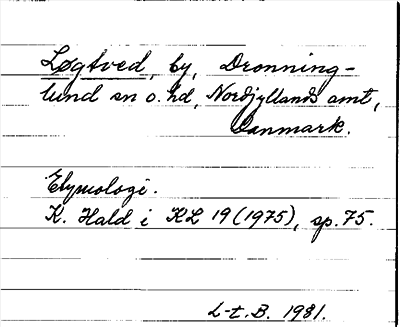 Løgtved, by, Dronning-
lund sn o. hd, Nordjyllands amt,
Danmark.
Etymologi.
K. Hald i KL 19 (1975), sp. 75.
L-t. B. 1981.